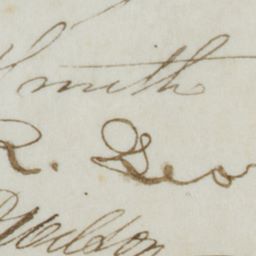 Smith
R. Geo
Wilson